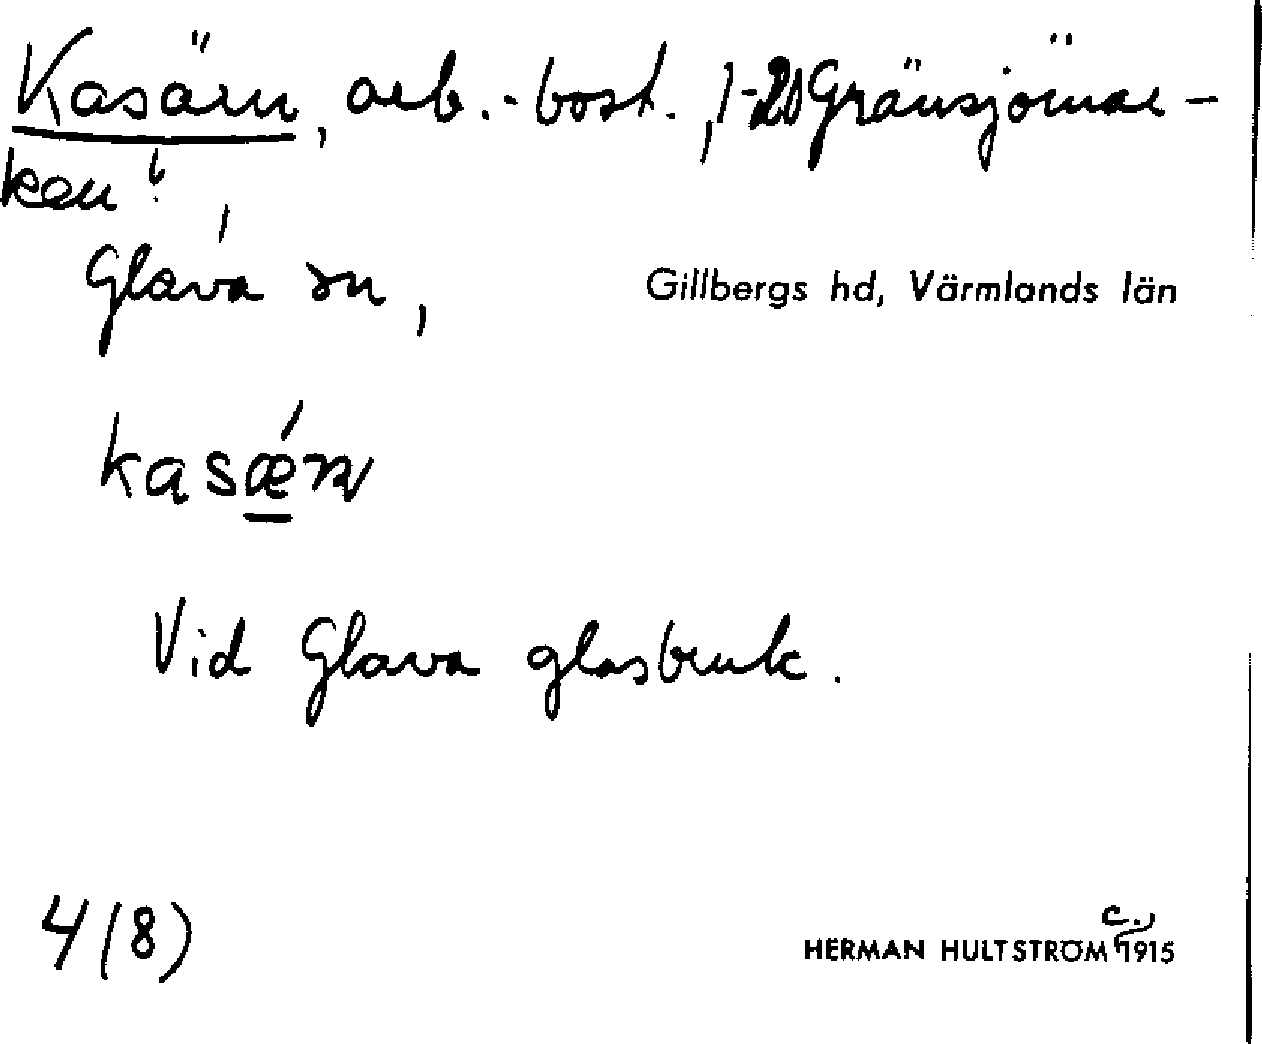 Kasärn, arb.-bost., 1-20 Gränsjömar-
ken!,
Glava sn, Gillbergs hd, Värmlands län
kasǽrn
Vid Glava glasbruk.
4(8) HERMAN HULTSTRÖM c., 1915